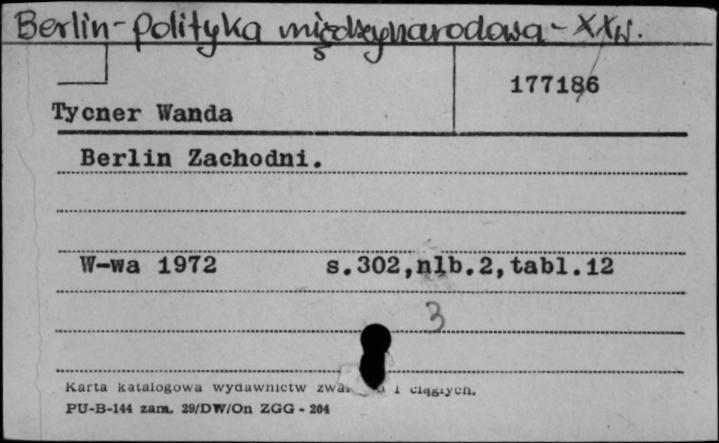 Berlin - polityka międzynarodowa - XX w.
177186
Tycner Wanda
Berlin Zachodni.
W-wa 1972 s.302,nlb.2,tabl.12
3
Karta katalogowa wydawnictw i ciągłych.
PU-B-144 zam. 29/DW/On ZGG - 204